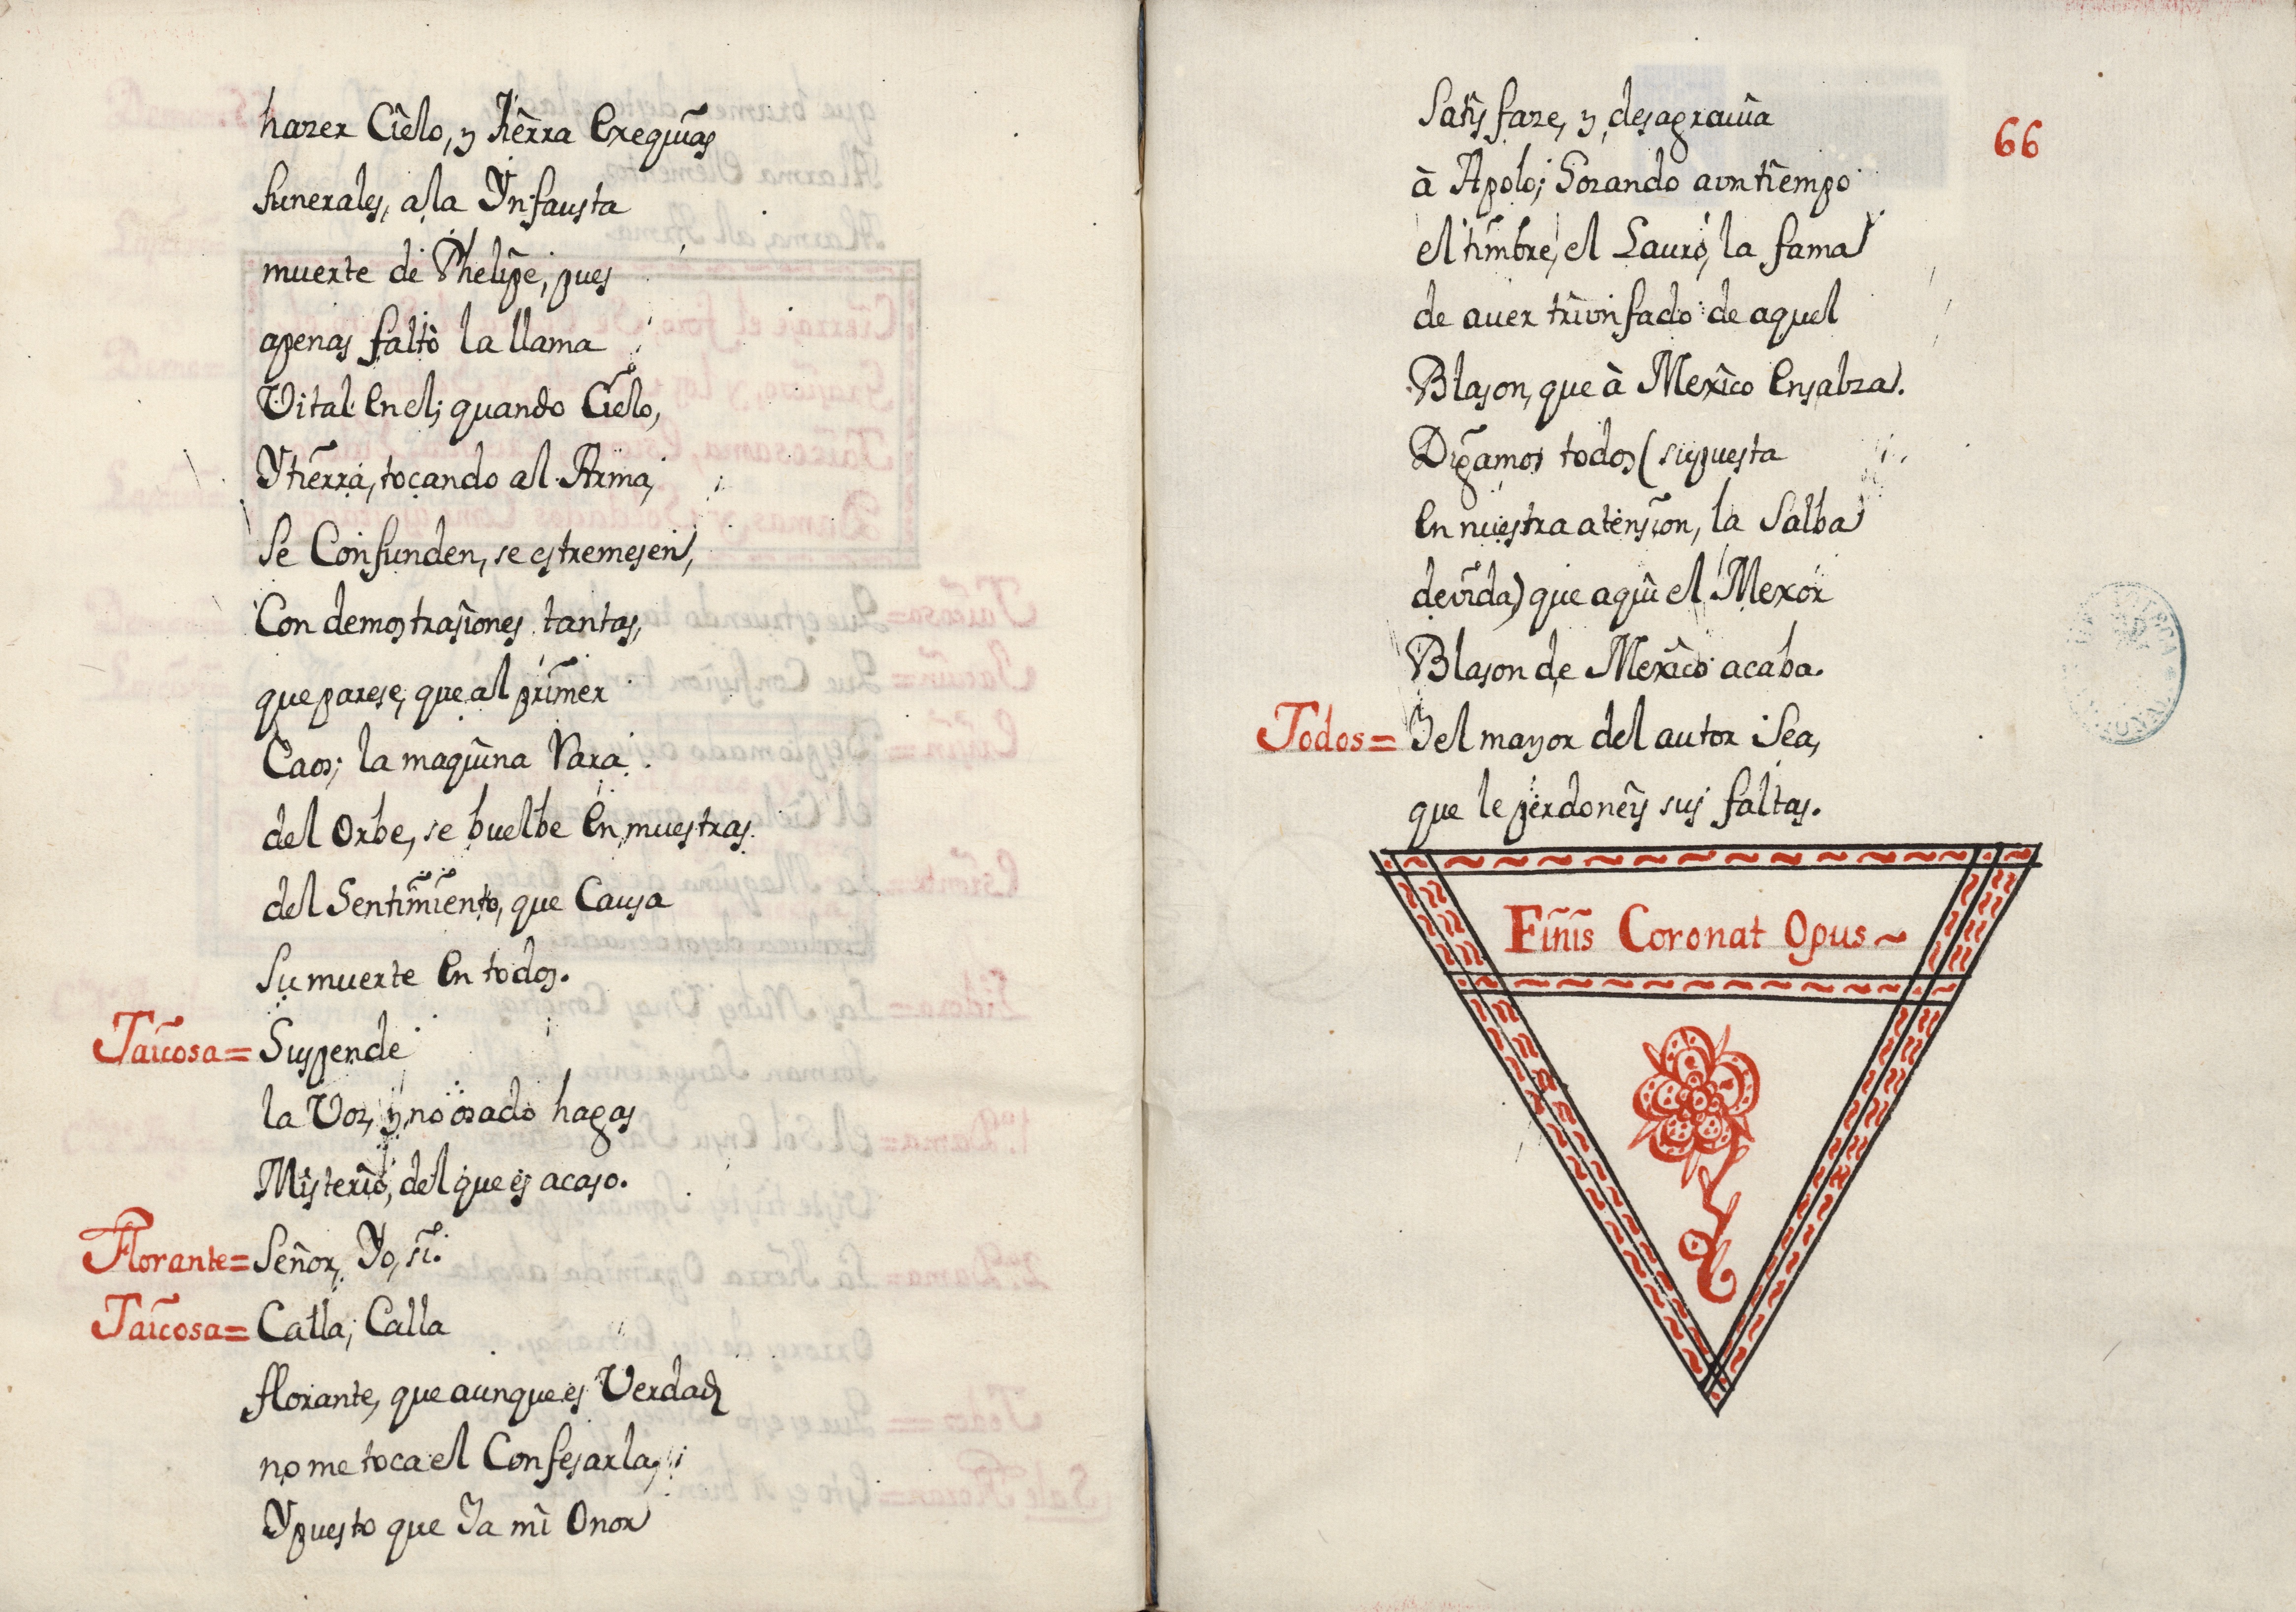 hazer Cielo, y tierra Exequias
funerales, a la Ynfausta
muerte de Phelipe, pues
apenas faltò la llama
Vital en el; quando Cielo,
Y tierra, tocando al Arma,
Se Confunden, se estremesen,
Con demostrasiones tantas,
que parese, que al primer
Caos; la maquina Rara
del Orbe, se buelbe En muestras
del Sentimiento, que Causa
Su muerte En todos.
Taicosa= Suspende
la Voz, y no osado hagas
Misterio, del que es acaso.
Florante= Señor, Yo, si.
Taicosa= Calla, Calla
florante, que aunque es Verdad
no me toca el Confesarla,
Y puesto que Ya mi Onor
66
Satisfaze, y desagrauia
à Apolo; Gozando a vn tiempo
el timbre, el Lauro, la fama
de auer trivnfado de aquel
Blason, que à Mexico Ensalza.
Digamos todos (supuesta
En nuestra atension, la Salba
devida) que aqui el Mexor
Blason de Mexico acaba.
Todos= Y el mayor del autor Sea,
que le perdoneis sus faltas.
Finis Coronat Opus~